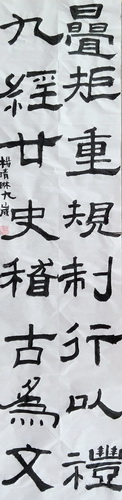 疊矩重規制行以禮
九經廿史稽古為文
晴琳九歲